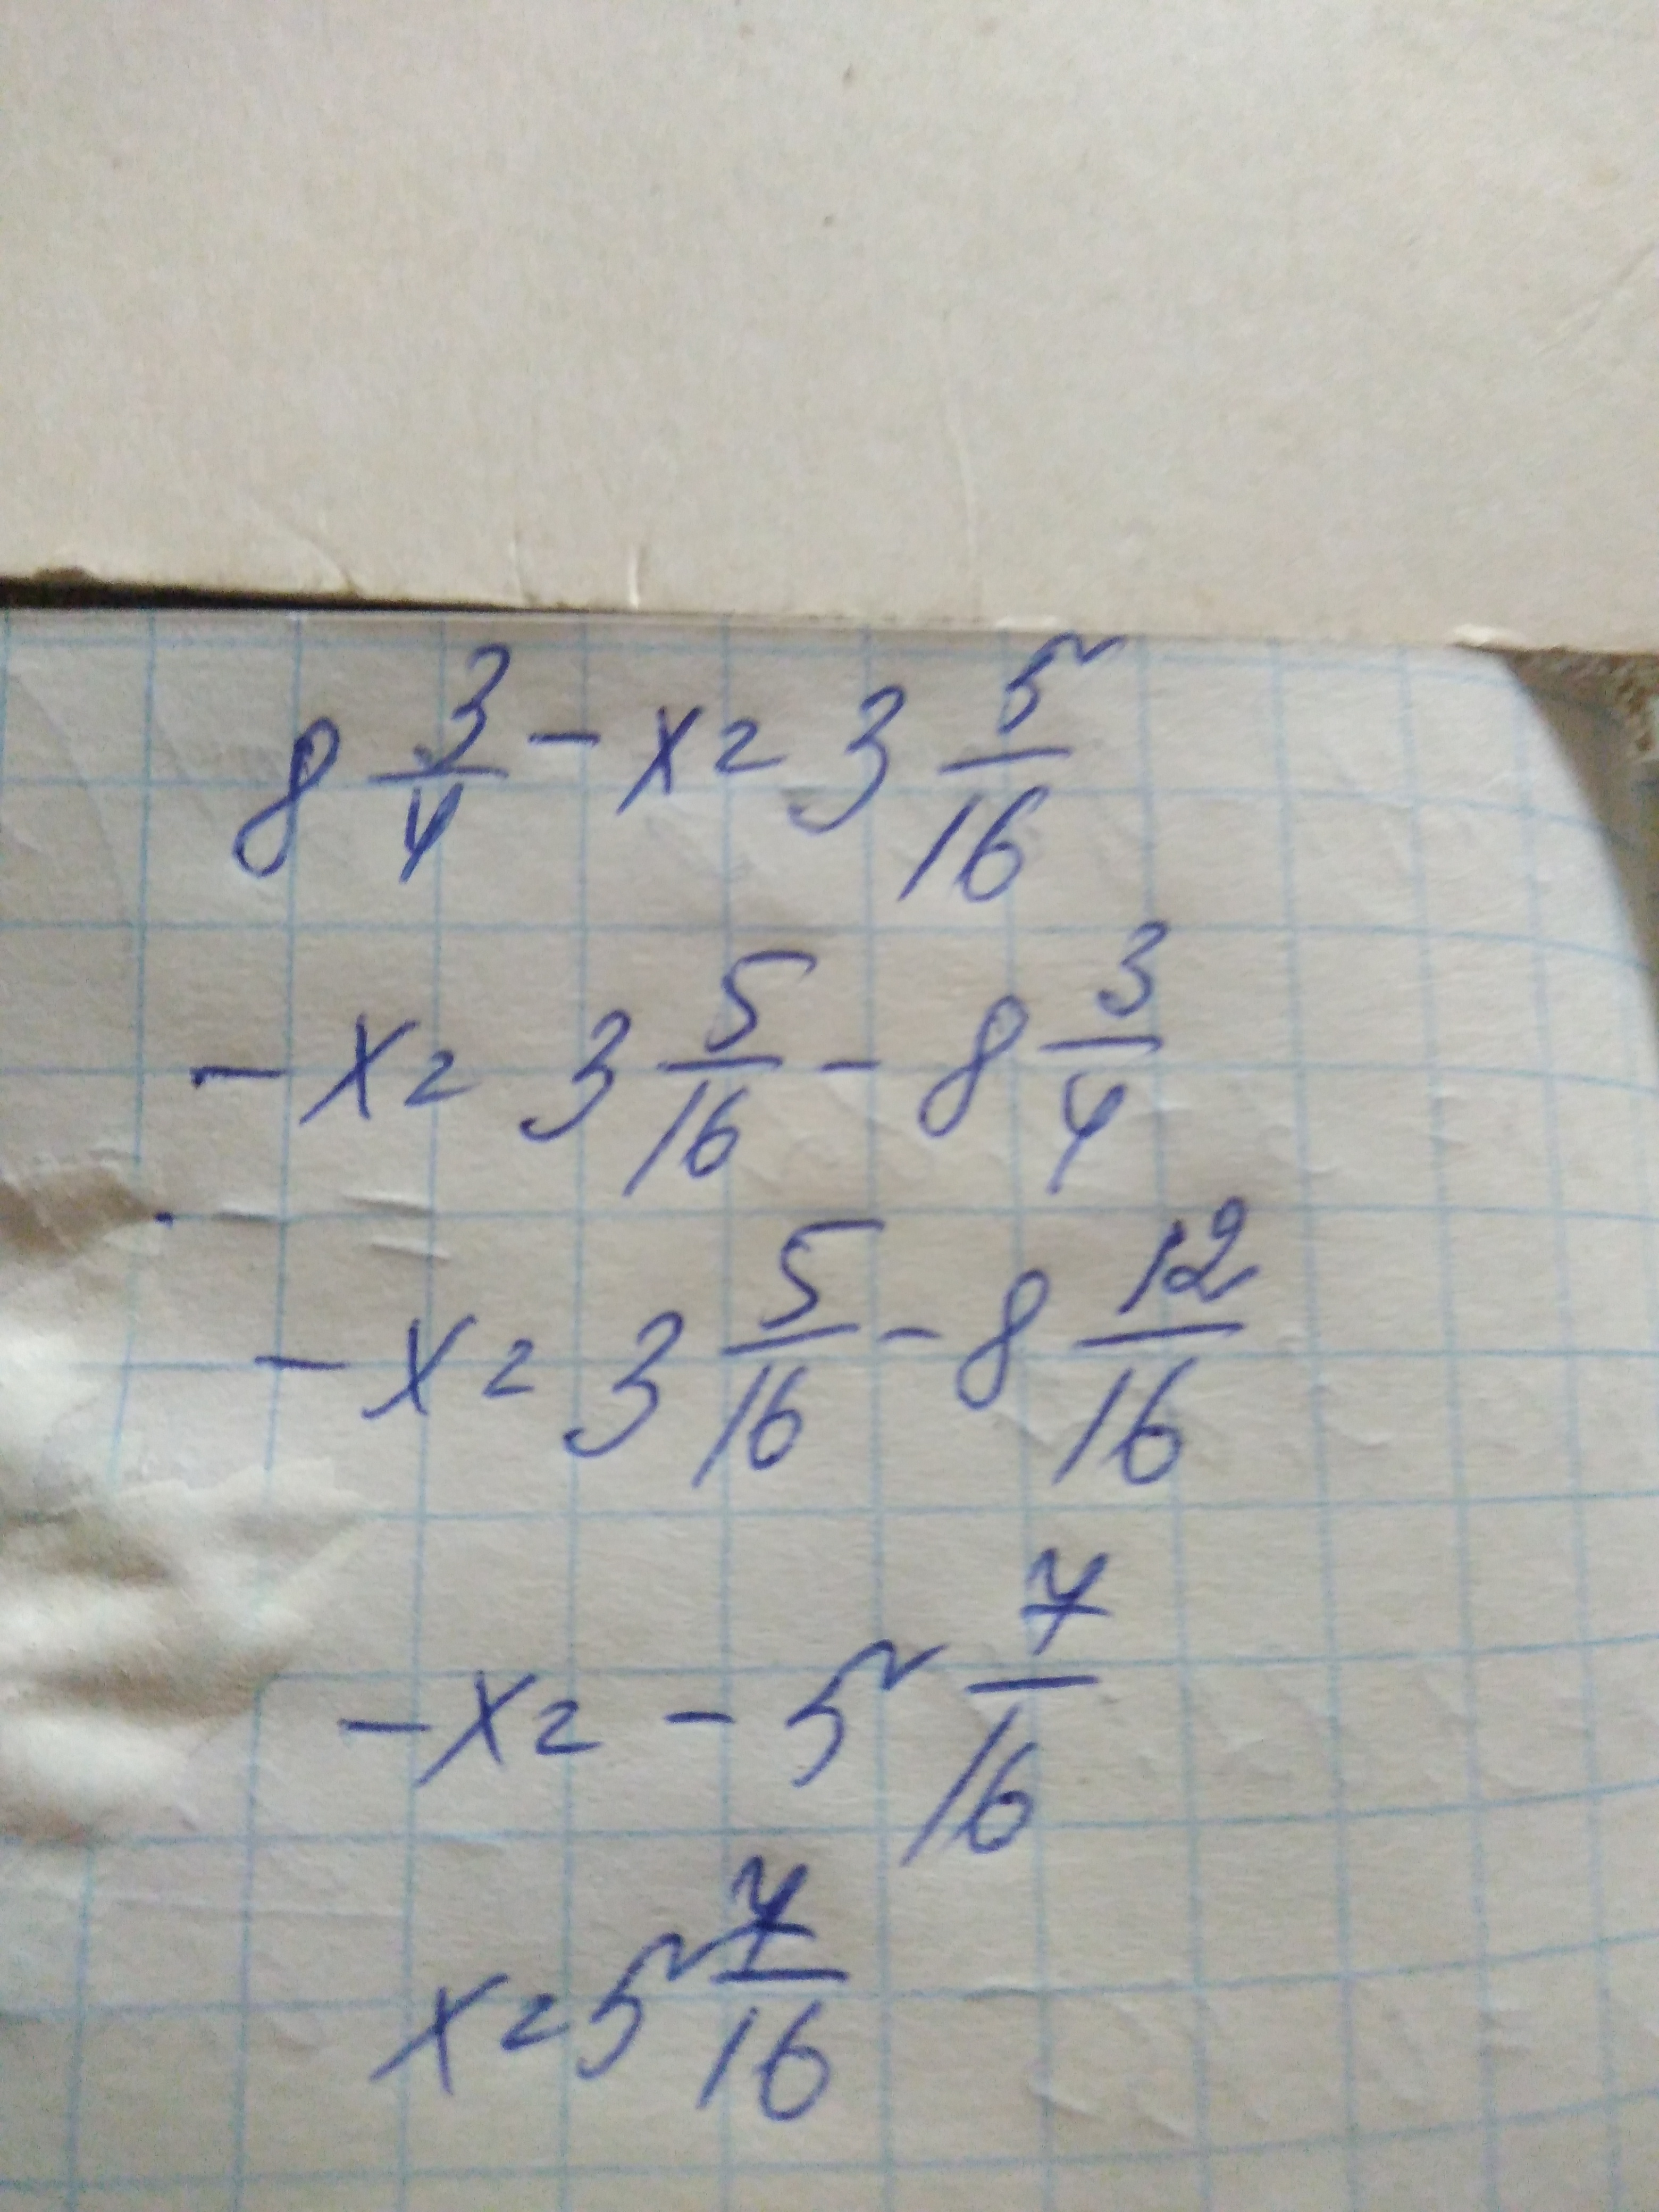 8 3/4 - x = 3 5/16
- x = 3 5/16 - 8 3/4
- x = 3 5/16 - 8 12/16
- x = - 5 7/16
x = 5 7/16